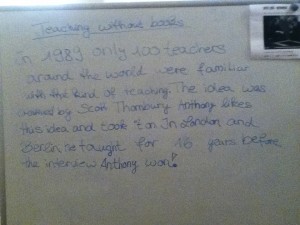 Teaching without books
in 1989 only 100 teachers
around the world were familiar
with this kind of teaching. The idea was
created by Scott Thornbury. Anthony likes
this idea and took it on. In London and
Berlin he taught for 16 years before
the interview. Anthony won!